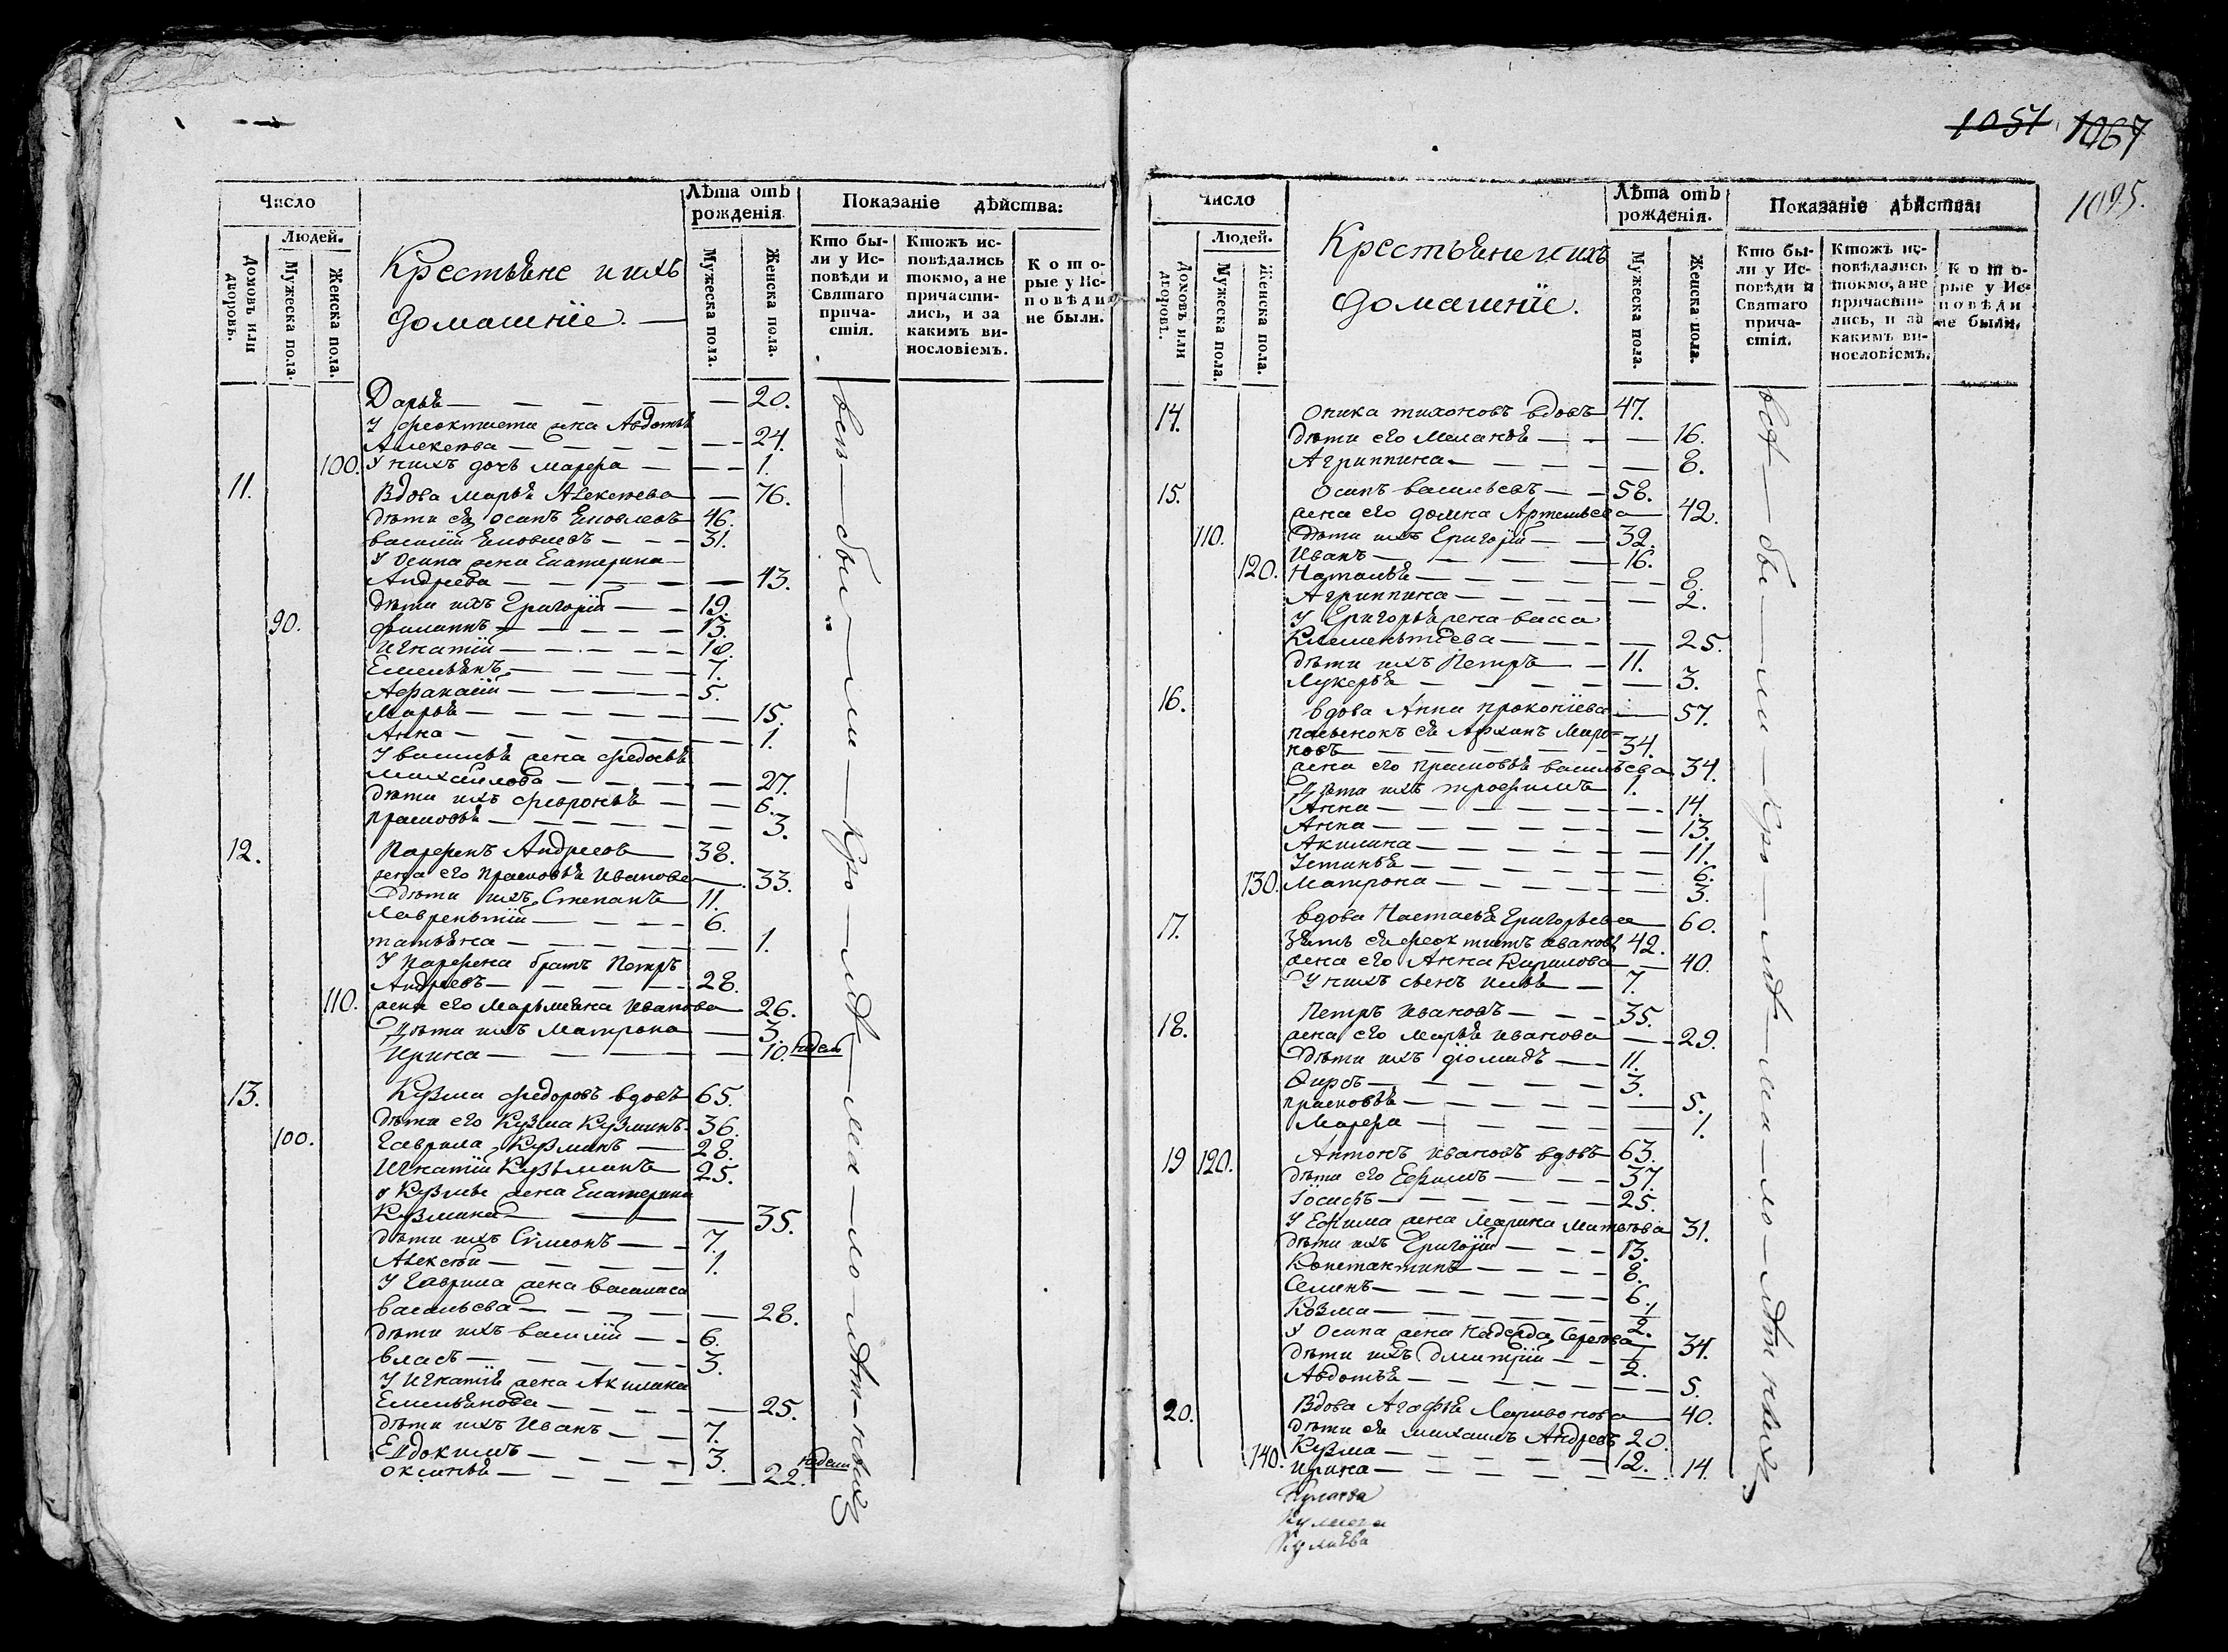 1051 1067
1095.
Число
Людей.
Домовъ или дворовъ.
Мужеска пола.
Женска пола.
Крестьяне и ихъ
домашнїе.
Лѣта отъ рожденія
Мужеска пола.
Женска пола.
Показаніе дѣйства:
Кто были у Исповѣди и Святаго причастія.
Ктожъ исповѣдались токмо, а не причастились, и за какимъ винословіемъ.
Которые у Исповѣди не были.
Дарья — 20.
У феоктиста жена Авдотья
Алексѣева — 24.
100. У нихъ дочь марфа — 1.
11. Вдова марья Алексѣева — 76.
дѣти ея осипъ Яковлевъ 46.
василій Яковлевъ — 31.
У Осипа жена Екатерина
Андреева — 43.
дѣти ихъ Григорій — 19.
90. филиппъ — 13.
Игнатій — 10.
Емельянъ — 7.
Афанасій — 5.
Марья — 15.
Анна — 1.
У василья жена федосья
Михаилова — 27.
дѣти ихъ февронья — 6.
прасковья — 3.
12. Парфенъ Андреевъ 38.
жена его прасковья Иванова — 33.
Дѣти ихъ Степанъ 11.
Лаврентій — 6.
татьяна — 1.
У Парфена братъ Петръ
Андреевъ — 28.
110. жена его Марьмяна Иванова 26.
Дѣти ихъ Матрона — 3.
Ирина — 10.
13. Кузма федоровъ вдовъ 65.
дѣти его Кузма Кузминъ 36.
100. Гаврила Кузминъ — 28.
Игнатій Кузьминъ 25.
у Кузмы жена Екатерина
Кузмина — 35.
дѣти ихъ Сѵмеонъ — 7.
Алексѣй — 1.
У Гаврила жена василиса
васильева — 28.
дѣти ихъ василій — 6.
власъ — 3.
У Игнатія жена Акилина
Емельянова — 25.
дѣти ихъ Иванъ — 7.
Евдокимъ — 3.
оксинья — 22.
Число
Людей.
Домовъ или дворовъ.
Мужеска пола.
Женска пола.
Крестьяне и ихъ
домашнїе.
Лѣта отъ рожденія.
Мужеска пола.
Женска пола.
Показаніе дѣйства:
Кто были у Исповѣди и Святаго причастія.
Ктожъ исповѣдались токмо, а не причастились, и за какимъ винословіемъ.
Которые у Исповѣди не были.
14. Оника тихоновъ вдовъ 47.
дѣти его Меланья — 16.
Агриппина — 8.
15. Осипъ васильевъ — 58.
жена его домна Артемьева — 42.
110. Дѣти ихъ Григорій — 32.
Иванъ — 16.
120. Наталья — 8.
Агриппина — 2.
У Григорья жена васса
Клементіева — 25.
дѣти ихъ Петръ — 11.
Лукерья — 3.
16. вдова Анна прокопіева — 57.
пасынокъ ея Архипъ Миро=
новъ — 34.
жена его прасковья васильева 34.
Дѣти ихъ трофимъ 1.
Анна — 14.
Анна — 13.
Акилина — 11.
Устинья — 6.
130. Матрона — 3.
17. вдова Настасья Григорьева 60.
зять ея феоктистъ ивановъ 42.
жена его Анна Кирилова — 40.
У нихъ сынъ Илья — 7.
18. Петръ ивановъ — 35.
жена его марья иванова — 29.
Дѣти ихъ діомидъ — 11.
Фирсъ — 3.
прасковья — 5.
Марфа — 1.
19 120. Антонъ ивановъ вдовъ 63.
дѣти его Ефимъ — 37.
Іосифъ — 25.
У Ефима жена Марина Матвѣева 31.
дѣти ихъ Григорій — 13.
Константинъ — 8.
Семенъ — 6.
Козма — 1/2.
У Осипа жена Надежда Сергѣева 34.
дѣти ихъ Дмитрій — 1/2.
Авдотья — 5.
20. Вдова Агафья Ларионова — 40.
дѣти ея михаилъ Андреевъ 20.
Кузма — 12.
140. ирина — 14.